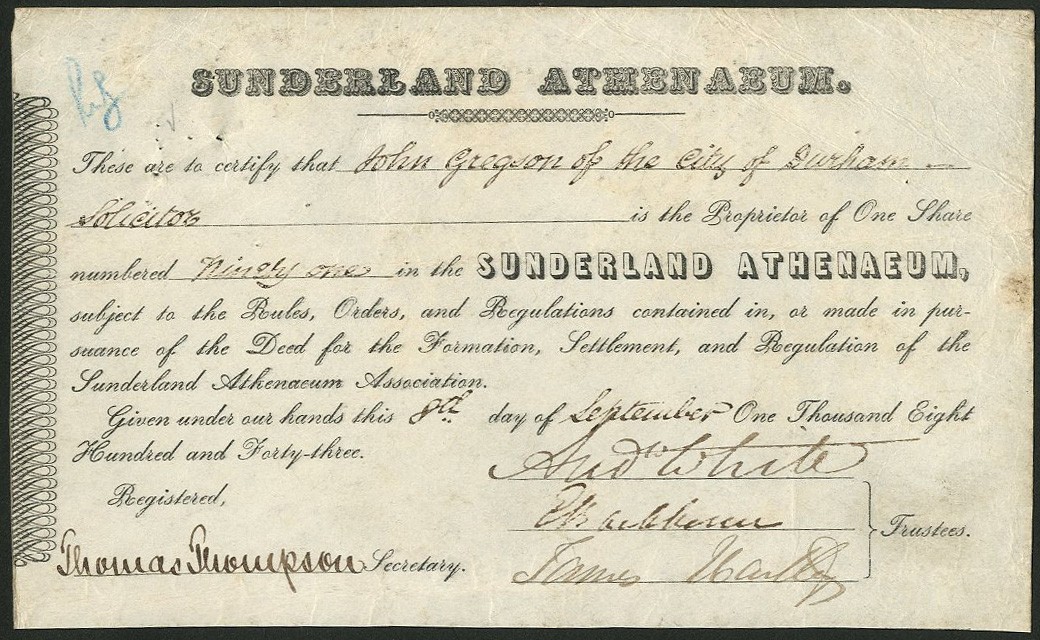 SUNDERLAND ATHENAEUM.
These are to certify that John Gregson of the City of Durham —
Solicitor is the Proprietor of One Share
numbered Ninety one in the SUNDERLAND ATHENAEUM,
subject to the Rules, Orders, and Regulations contained in, or made in pur-
suance of the Deed for the Formation, Settlement, and Regulation of the
Sunderland Athenaeum Association.
Given under our hands this 8th day of September One Thousand Eight
Hundred and Forty-three.
Andw White
Registered,
Trustees.
Thomas Thompson Secretary.
James Hartley